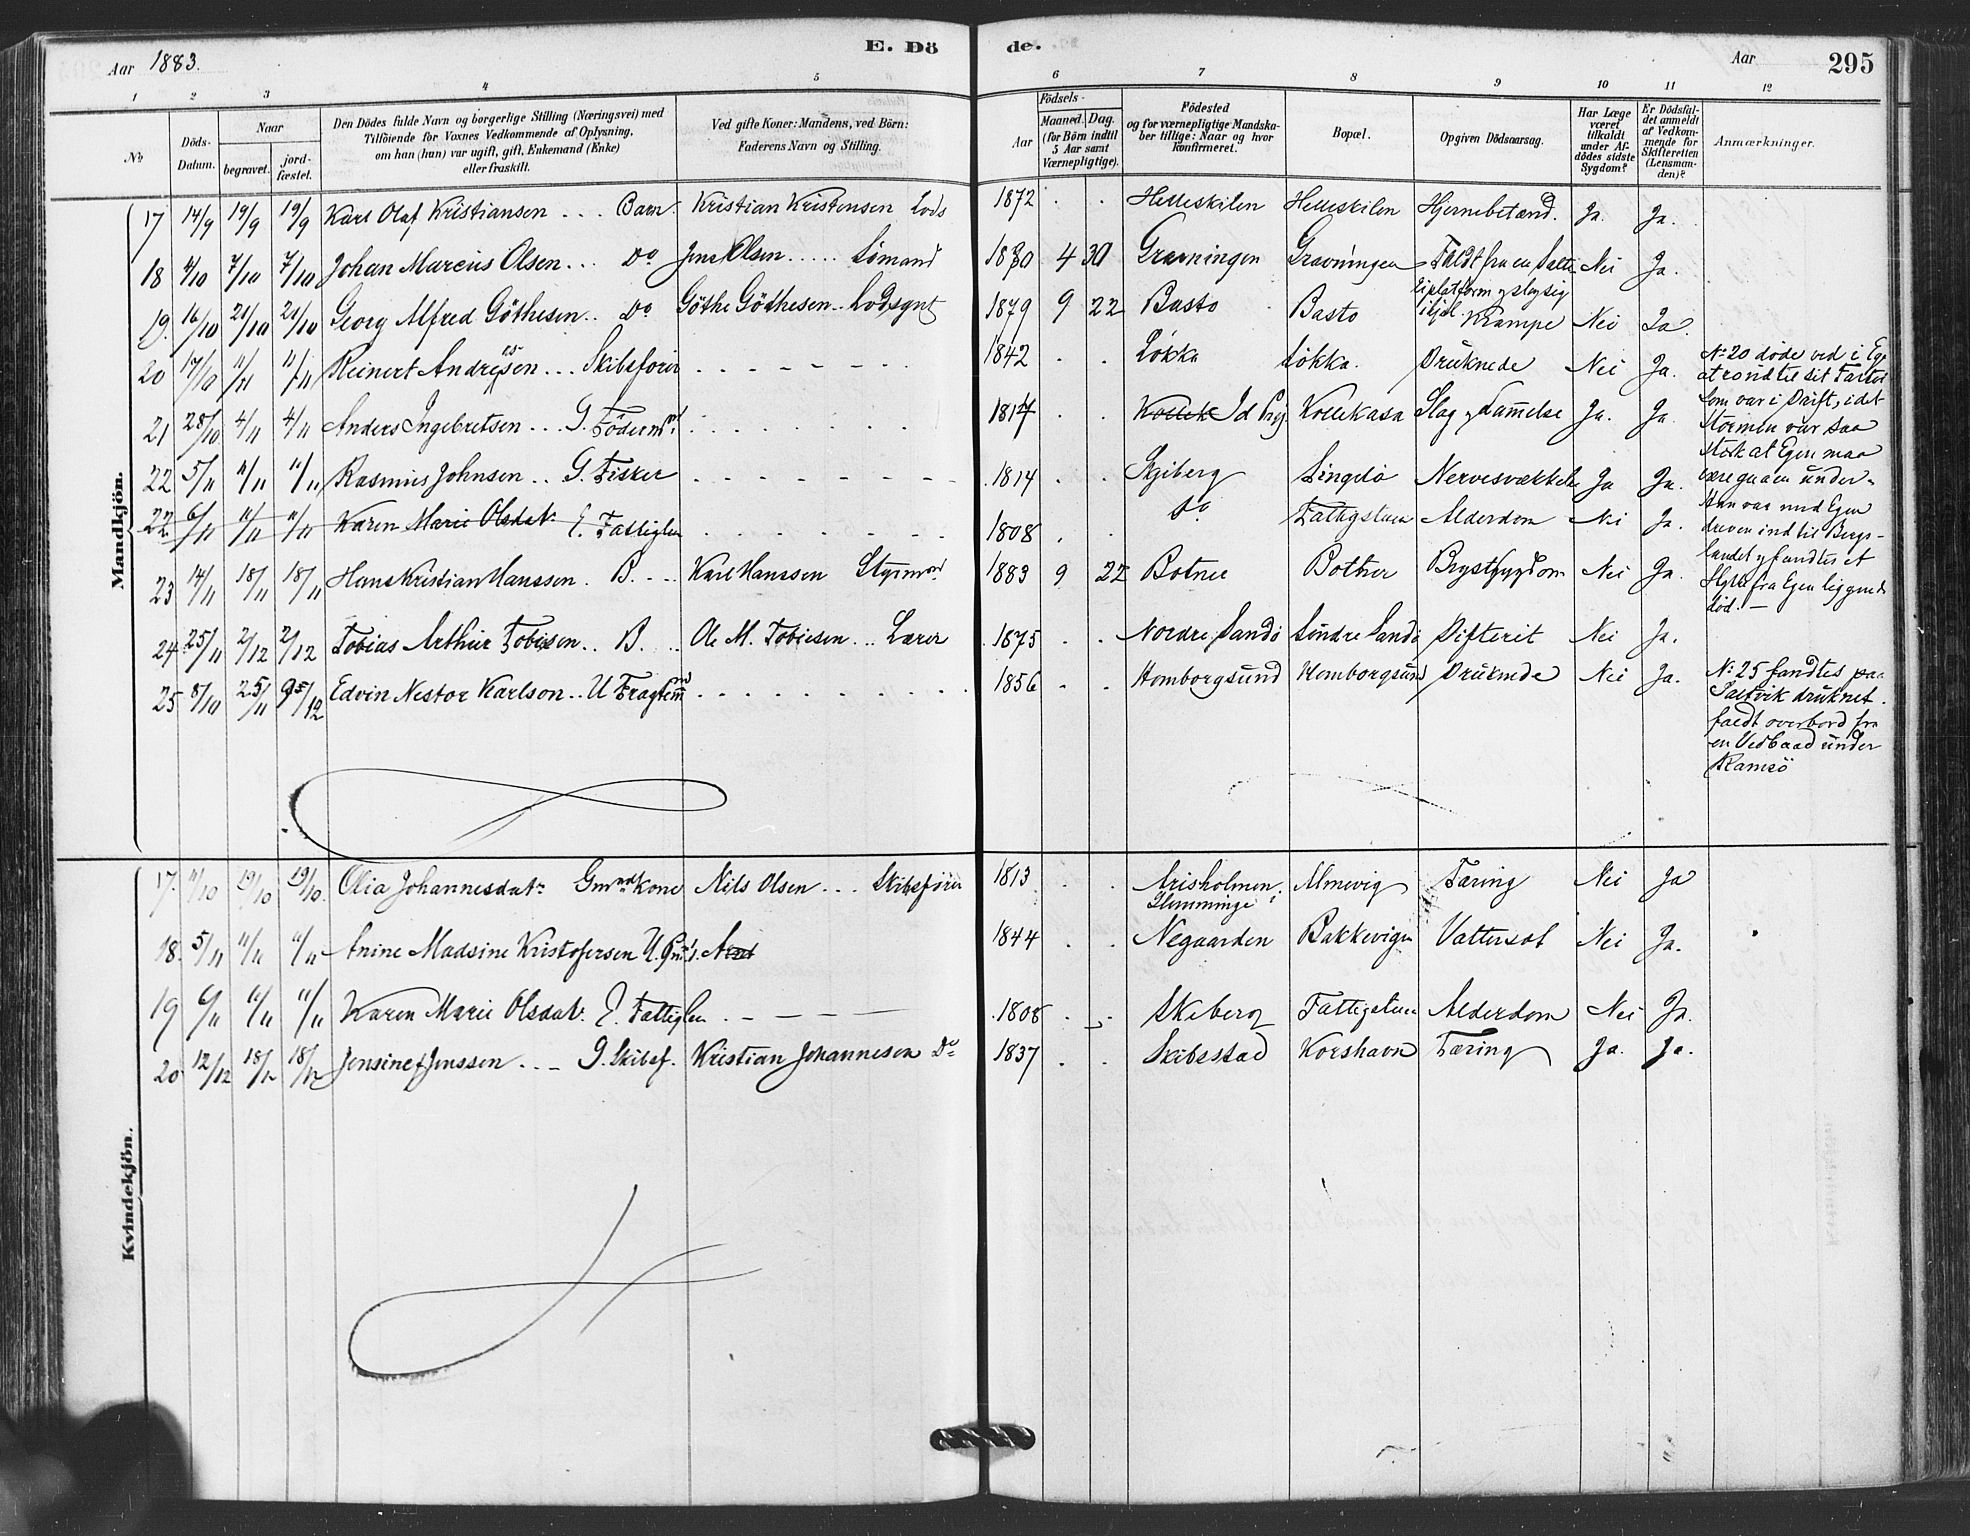 Aar 1883. E. Dö de. Aar 295
1 2 3 4 5 6 7 8 9 10 11 12
No Döds-Datum. Naar begravet. jord-fæstet. Den Dödes fulde Navn og borgerlige Stilling (Næringsvei) med Tilföiende for Voxnes Vedkommende af Oplysning, om han (hun) var ugift, gift, Enkemand (Enke) eller fraskilt. Ved gifte Koner: Mandens, ved Börn: Faderens Navn og Stilling. Födsels- Aar Maaned. Dag. (for Börn indtil 5 Aar samt Værnepligtige). Födested og for værnepligtige Mandska-ber tillige: Naar og hvor Konfirmeret. Bopæl. Opgiven Dödsaarsag. Har Læge været tilkaldt under Af-dödes sidste Sygdom? Er Dödsfal-det anmeldt af Vedkom-mende for Skifteretten (Lensman-den)? Anmærkninger.
Mandkjön.
17 14/9 19/9 19/9 Karl Olaf Kristiansen ... Barn. Kristian Kristensen Lods 1872 . . Helleskilen Helleskilen Hjernebetænd. Ja. Ja.
18 4/10 7/10 7/10 Johan Marcus Olsen ... Do Jens Olsen ..... Sömand 1880 4 30 Gravningen Gravningen Faldt fra en Nei Ja.
19. 16/10 21/10 21/10 Georg Alfred Göthesen .. Do Göthe Göthesen .. Lodsgut 1879 9 22 Basto Basto Krampe Nei Ja.
20 17/10 11/11 11/11 Reinert Andresen ... Skibsförer 1842 . . Løkka Løkka. Druknede Nei Ja. No 20 døde ved i Ege
at ro ud til sit Fartøi
som var i Drift, idet
Stormen var saa
stærk at Egen maa
være gaaen under.
Han var med Egen
dreven ind til Bergs-
landet og fandtes et
Stykke fra Egen liggende
död. —
21 28/10 4/11 4/11 Anders Ingebretsen ... G. Födermd. 1817 . . Id Prgj. Kollekasa Slag og Lammelse Ja. Ja.
22 5/11 11/11 11/11 Rasmus Johnsen .. G. Fisker 1814 . . Skjiberg Singelö Nervesvækkelse Ja Ja.
22 6/11 11/11 11/11 Karen Marie Olsdatr. E. Fattiglem 1808 . . do Fattigstuen Alderdom Nei Ja.
23 14/11 18/11 18/11 Hans Kristian Hanssen. B. Karl Hanssen Styrmand 1883 9 22 Botner Bottner Brystsygdom Nei Ja.
24 25/11 2/12 2/12 Tobias Arthur Tobisen .. B. Ole M. Tobiesen .. Lærer 1875 . . Nordre Sandö Söndre Sandö Difterit Nei Ja.
25 8/10 25/11 Edvin Nestor Karlson .. U Fragtemd 1856 . . Homborgsund Homborgsund Druknede Nei Ja. No 25 fandtes paa
druknet.
faldt overbord fra
en Vedbaad under
Ramsö
Kvindekjön.
17. 11/10 19/10 19/10. Olia Johannesdatr Gmnds Kone Nils Olsen ... Skibsförer 1813 . . Arisholmen, Slemminge Almevig Tæring Nei Ja
18. 5/11 11/11 11/11 Anine Madsine Kristofersen U. 1844 . . Negaarden Bakkevigen Vattersot Nei Ja.
19 6/11 11/11 11/11 Karen Marie Olsdatr. E. Fattiglem 1808 . . Skiberg Fattigstuen Alderdom Nei Ja.
20 12/12 18/12 18/12 Jensine Jenssen ... G. Skibsf. Kristian Johannesen Do 1837 . . Skibsstad Korshavn Tæring Ja. Ja.